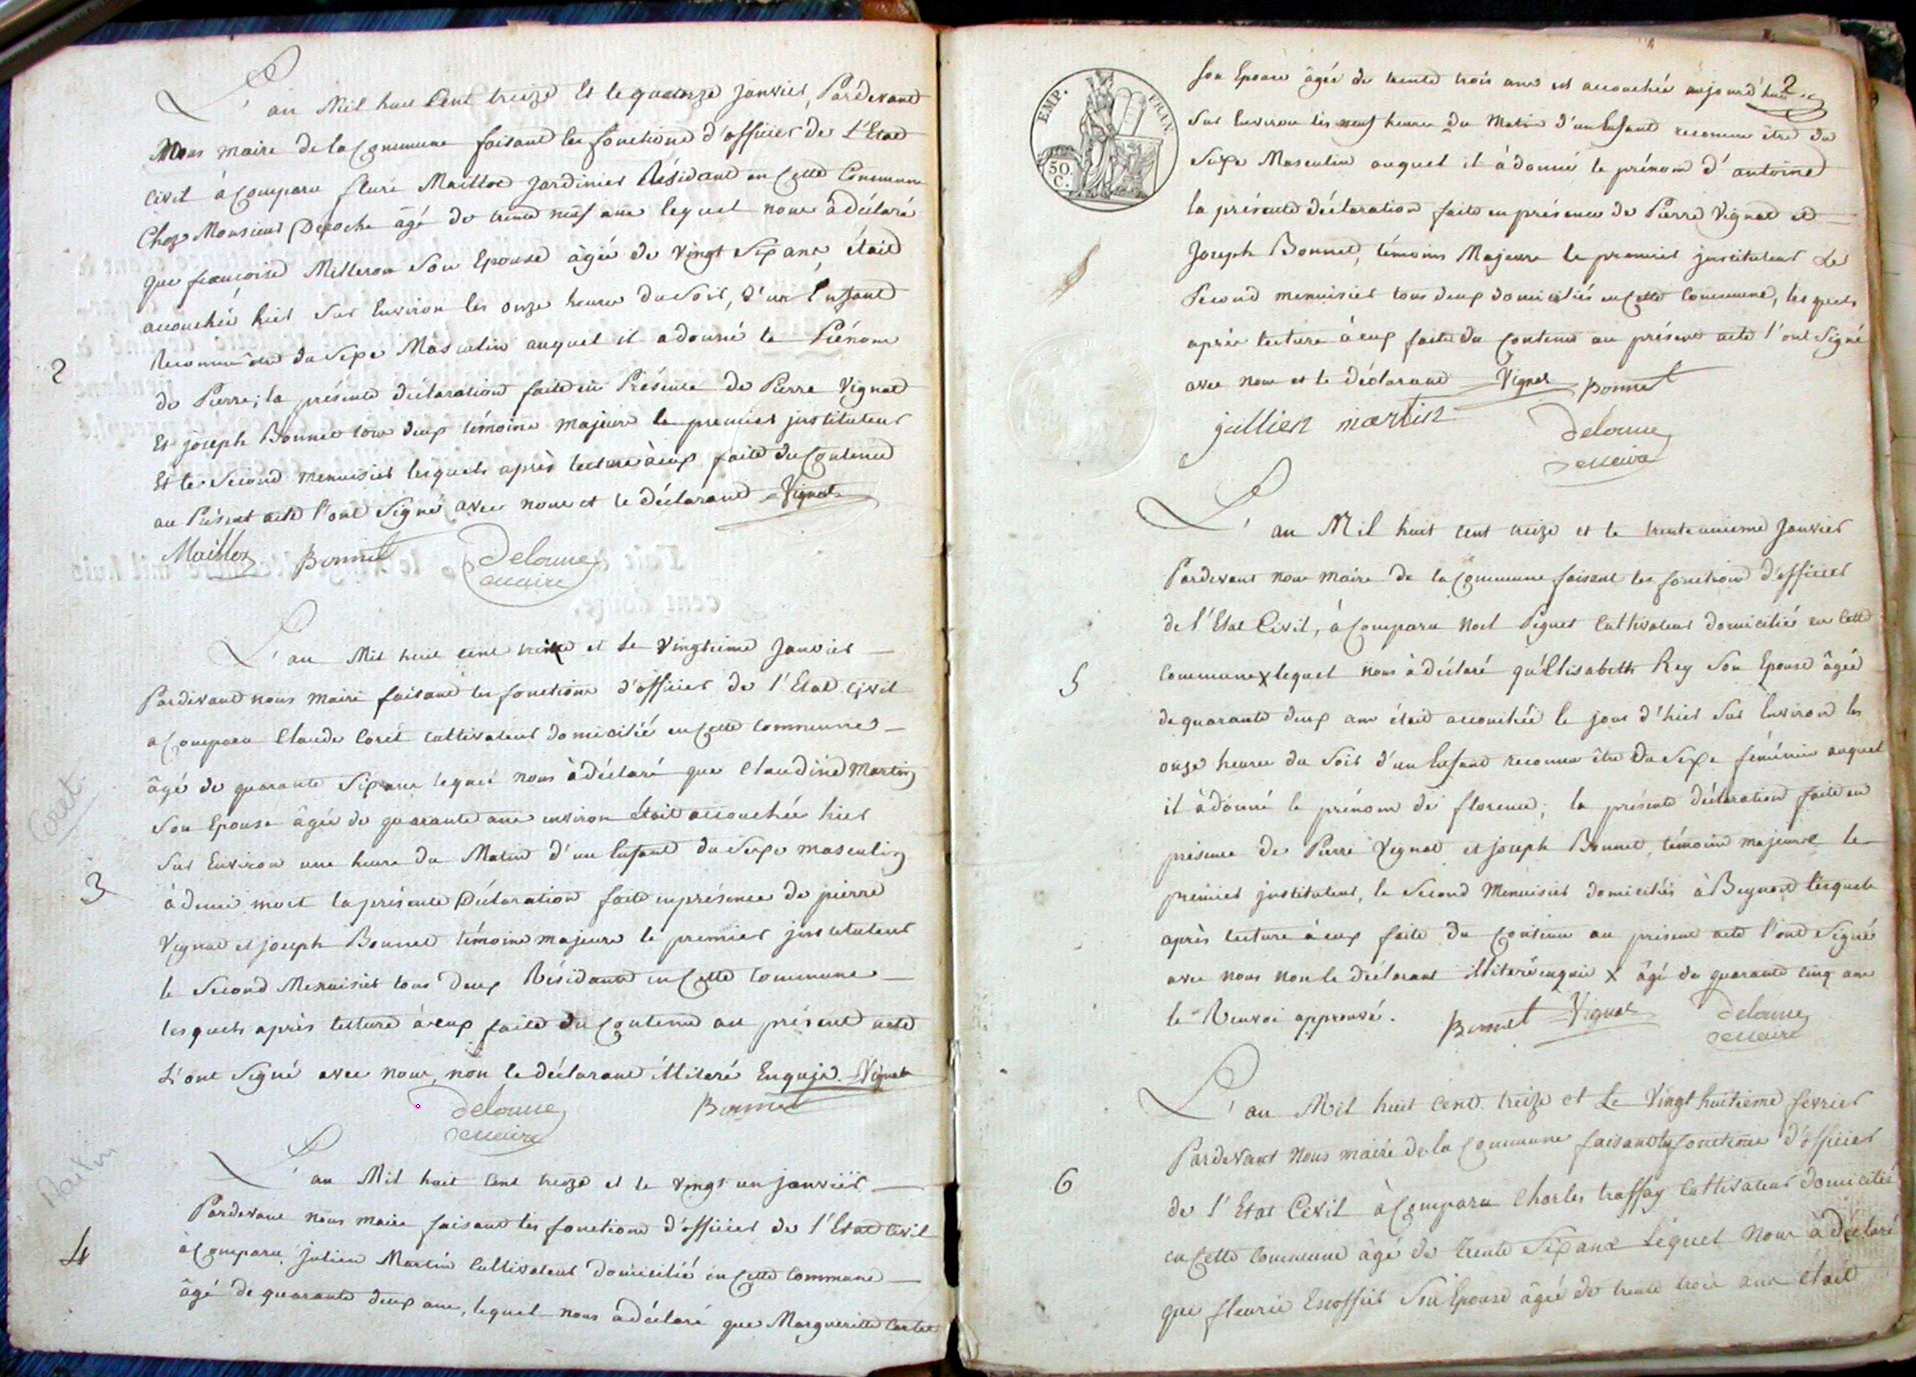 L'an Mil huit Cent treize Et le quatorze janvier, Pardevant
Nous maire de la Commune faisant les fonctions d'officier de L'Etat
Civil à Comparu fleuri Maillot jardinier Résidant en Cette Commune
Chez Monsieur âgé de trente neuf ans lequel nous à déclaré
que françoise Milleron Son Epouse âgée de vingt Six ans, étoit
accouchée hier Sur Environ les onze heures du Soir, d'un Enfant
Reconnu être du Sexe Masculin auquel il a donné le Prénom
de Pierre; la présente déclaration faite en Présence de Pierre Vignat
Et joseph Bonnet tous deux témoins majeurs le premier instituteur
Et le Second menuisier lesquels après lecture à eux faite du Contenu
au Présent acte l'ont Signé avec nous et le déclarant Vignat
Maillot Bonnet Delorme
maire
2
L'an Mil huit cent treize et Le vingtieme Janvier
Pardevant nous maire faisant les fonctions d'officier de l'Etat Civil
a Comparu Claude Coret cultivateur domicilié en Cette Commune
âgé de quarante Six ans lequel nous à déclaré que Claudine Martin
Son Epouse âgée de quarante ans environ étoit accouchée hier
Sur Environ une heure du Matin d'un Enfant du Sexe masculin
à demi mort la présente Déclaration faite en présence de pierre
Vignat et joseph Bonnet témoins majeurs le premier instituteur
le Second Menuisier tous deux Résidants en Cette Commune
lesquels après lecture à eux faite du Contenu au présent acte
L'ont Signé avec nous, non le déclarant illiteré Enquis. Vignat
Delorme Bonnet
maire
Coret
3
L'an Mil huit Cent treize et le vingt un janvier
Pardevant nous maire faisant les fonctions d'officier de l'Etat Civil
à Comparu julien Martin Cultivateur domicilié en Cette Commune
âgé de quarante deux ans, lequel nous à déclaré que Margueritte
Martin
4
2
EMP. FRAN.
50.
C.
Son Epouse âgée de trente trois ans est accouchée aujourd'hui
Sur Environ les neuf heures du Matin d'un Enfant reconnu être du
Sexe Masculin auquel il à donné le prénom d'antoine
la présente déclaration faite en présence de Pierre Vignat et
Joseph Bonnet, témoins Majeurs le premier instituteur Le
Second menuisier tous deux domiciliés en Cette Commune, lesquels
après lecture à eux faite du Contenu au présent acte l'ont Signé
avec nous et le Déclarant Vignat Bonnet
jullien martin Delorme
maire
L'an Mil huit cent treize et le trente unieme Janvier
Pardevant nous maire de la Commune faisant les fonctions d'officier
de l'Etat Civil, à Comparu Noel Pignet Cultivateur domicilié en Cette
Commune x lequel nous à déclaré qu'Elisabeth Rey Son Epouse âgée
de quarante deux ans étoit accouchée le jour d'hier Sur Environ les
onze heures du Soir d'un Enfant reconnu être du Sexe féminin auquel
il à donné le prénom de florence; la présente déclaration faite en
présence de Pierre Vignat et joseph Bonnet, témoins majeurs le
premier instituteur, le Second Menuisier domiciliés à lesquels
après lecture à eux faite du Contenu au présent acte l'ont Signé
avec nous non le déclarant illiteré enquis x âgé de quarante cinq ans
le Renvoi approuvé. Bonnet Vignat Delorme
maire
5
L'an Mil huit Cent treize et Le Vingt huitieme fevrier
Pardevant Nous maire de la Commune faisant les fonctions d'officier
de l'Etat Civil à Comparu Charles traffay Cultivateur domicilié
en Cette Commune âgé de trente Six ans Lequel Nous à déclaré
que fleurie Escoffier Son Epouse âgée de trente trois ans étoit
6